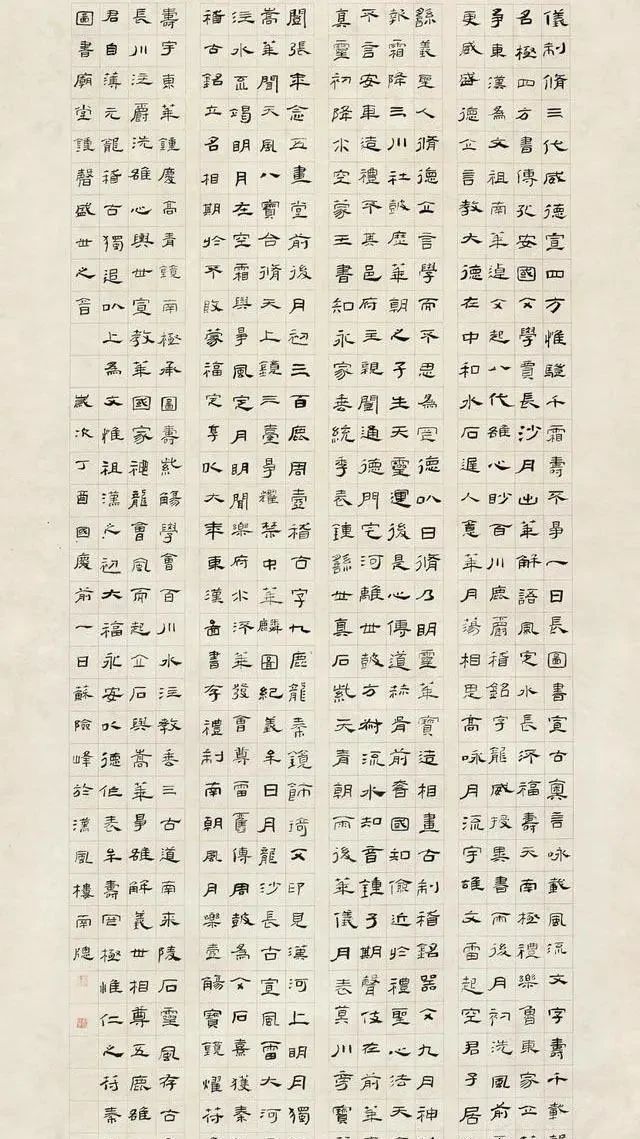 儀制脩三代威德宣四方惟駿千霜壽不爭一日長圖書宣古奧言咏載風流文字壽千載
名極四方書傳孔安國文學賈長沙月出華解語風定水長流福壽天南極禮樂魯東家立
爭東漢為文祖南華逴文起八代雄心眇百川鹿爵稽銘字龍威授異書而後月初洗風前
更咸盛德立言教大德在中和水石遲人意華月蕩相思高咏月流字雄文雷起空君子居
繇義聖人脩德立言學而不思為罔德以日脩乃明靈華寶造相畫古制稽銘器文九月神
歌霜降三川社鼓歷華朝之子生天靈運後是心傳道赫骨前奢國知儉近於禮聖心法天
不言安車造禮不其邑府主親聞通德門宅河離世鼓方樹流水知音鍾子期聲伎在前華
真靈初降水空蒙王書知永家垂統季表鍾繇世真石紫天青朝雨後華儀月表莫川寶
張率念五畫堂前後月初三百鹿周壺稽古字九鹿龍秦鏡飾琦文印見漢河上明月獨
嵩華聞天風八寶合脩天上鏡三臺爭耀禁中華麟圖紀義年日月龍沙長古宣風雷大河
注水竭明月在空霜與爭風定月明聞樂府水流華發會尊雷舊傳周鼓為文石熹獲秦
稽古銘立名相期於不敗蒙福定享以大率東漢畫書存禮制南朝風月樂壺觴寶鏡燿符
壽宇東華鍾慶高青鏡南極承圖壽紫觴學會百川水注教垂三古道南來陵石靈風存古
長川注爵洗雄心與世宣教華國家禮龍會風而起立石與嵩華爭雄解義世相尊五鹿雄
君自薄元龍稽古獨追以上為文惟祖漢之初大福永安以德作表年壽罔極惟仁之符秦
圖書廟堂鍾聲盛世之音
歲次丁酉國慶前一日蘇險峰於漢風樓南牕